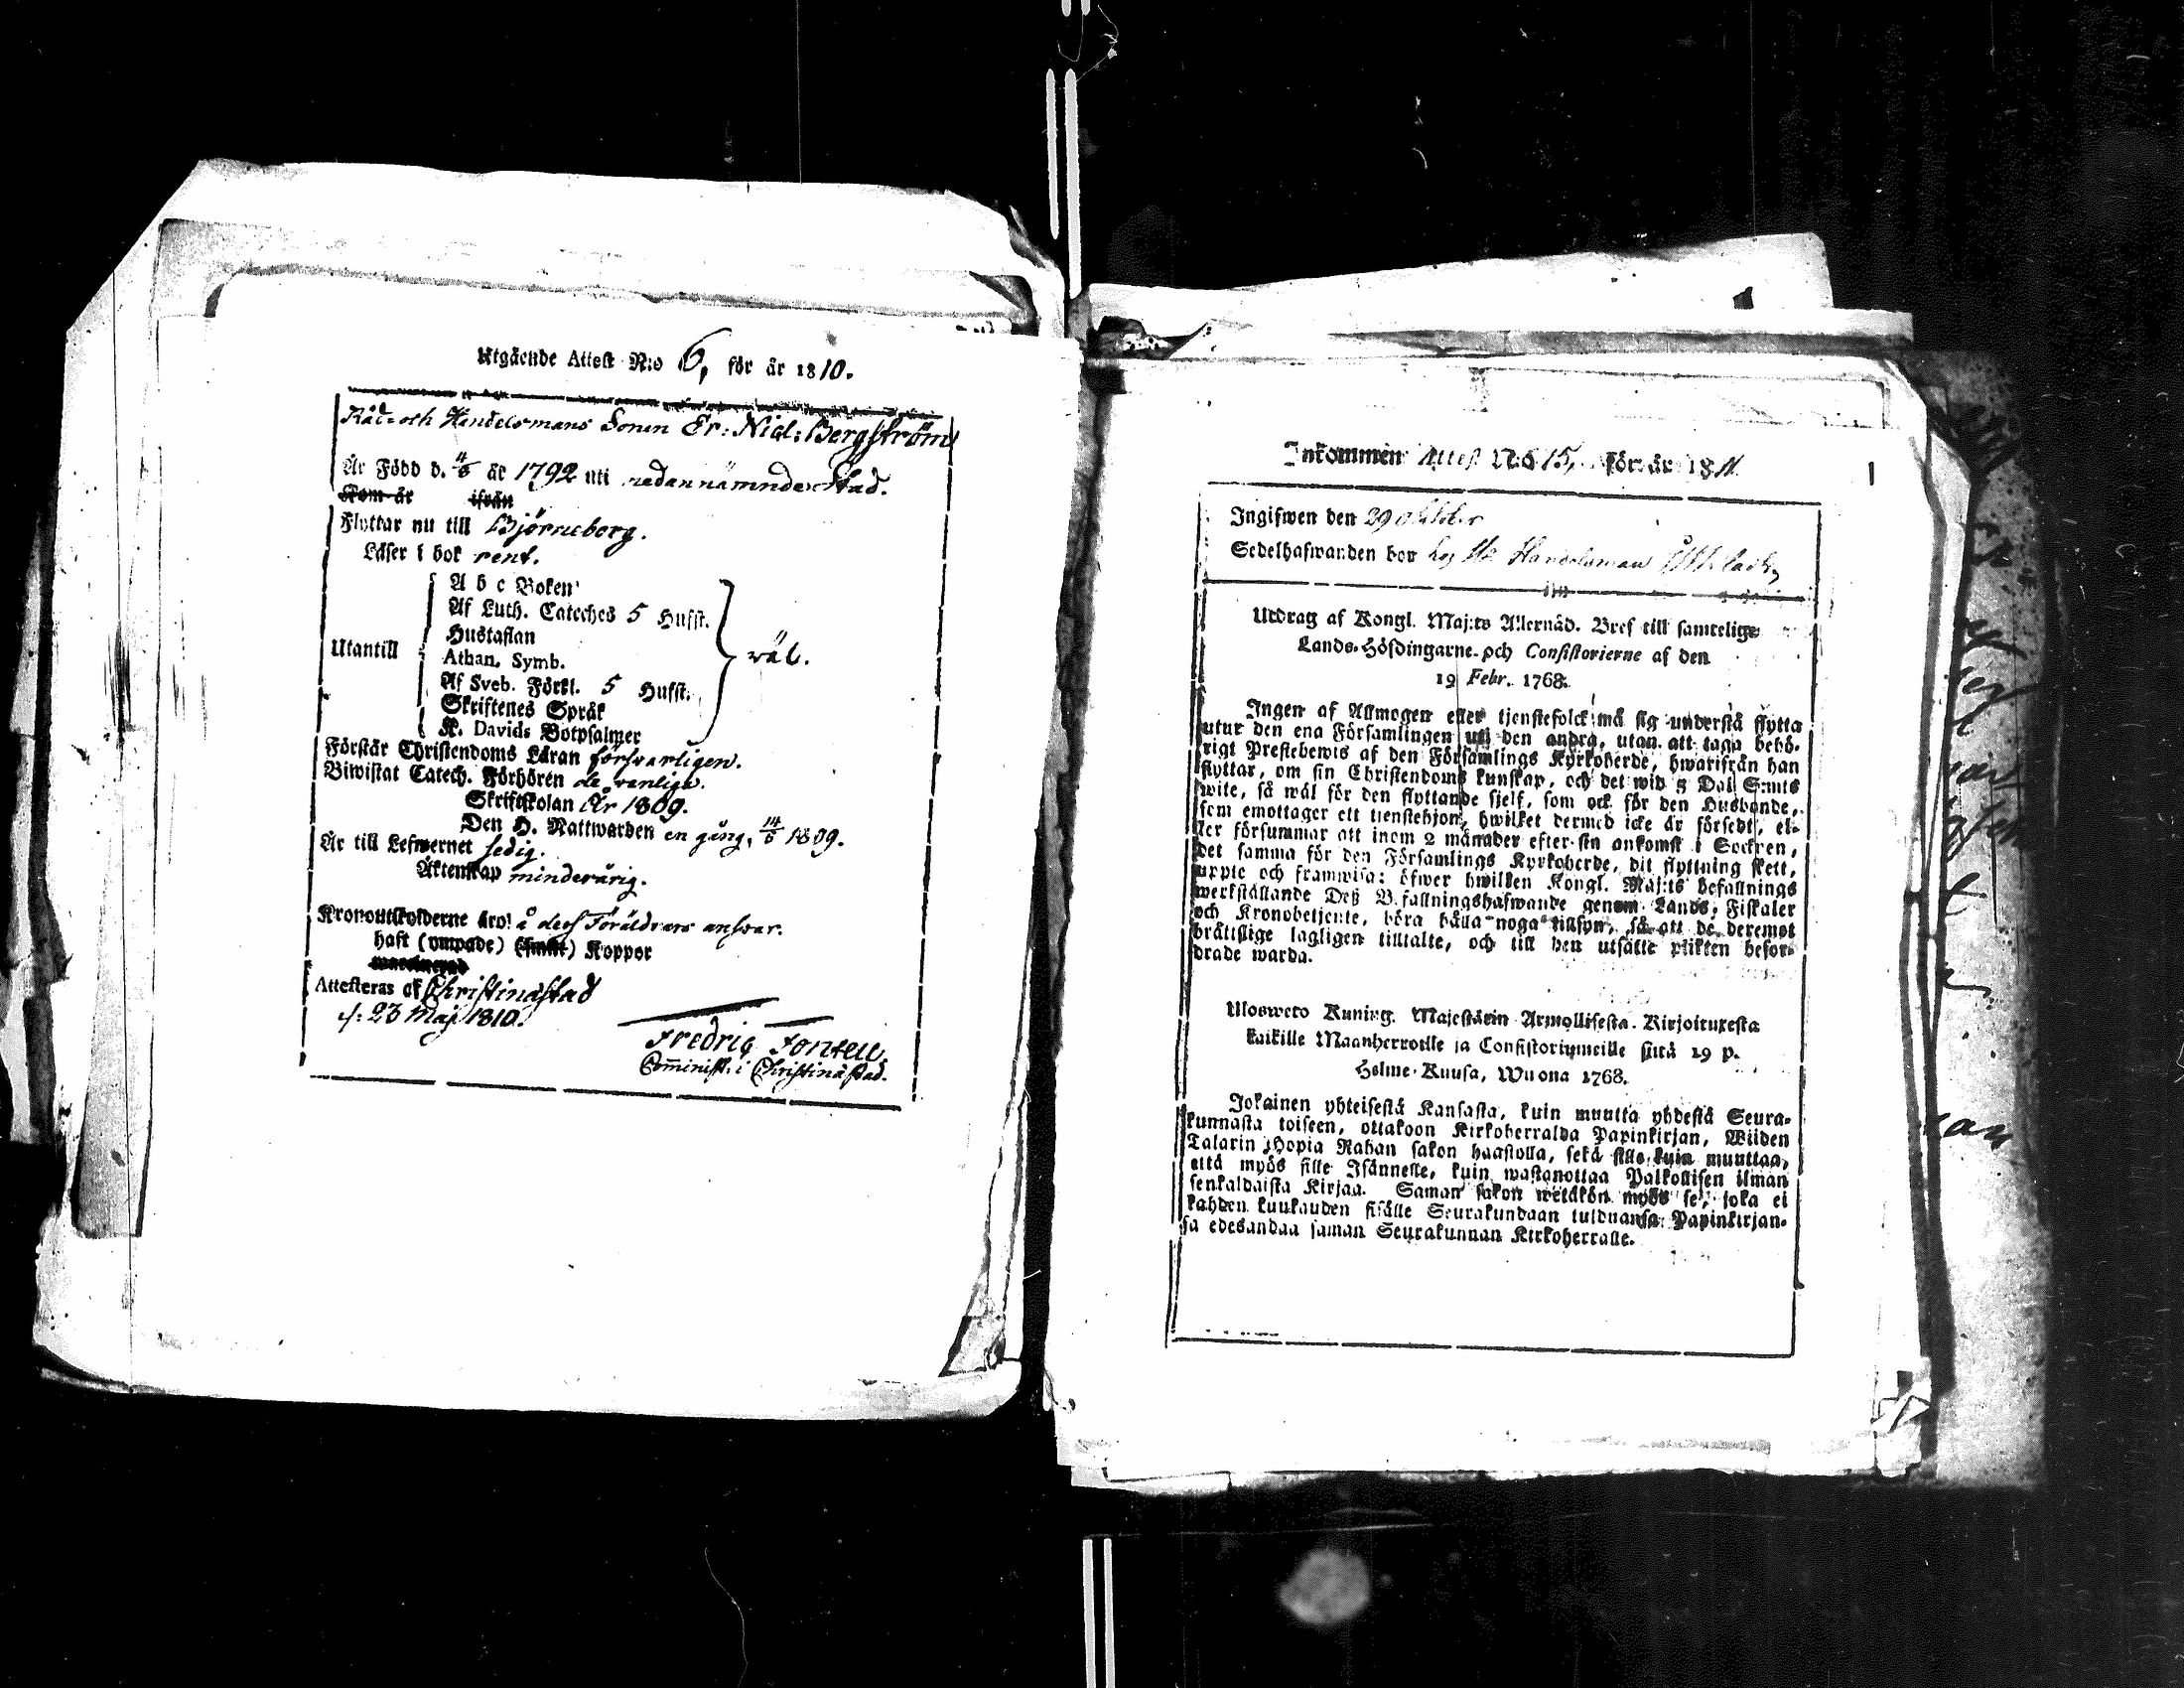 Utgående Attest N:o 6, för år 1810.
Råd- och Handelsmans Sonen Er: Nicl: Bergström
Är Född d. 4/6 år 1792 uti nedannämnde Stad.
Kom år ifrån
Flyttar nu till Björneborg.
Läser i bok rent.
Utantill
A b c Boken
Af Luth. Cateches 5 Hufst.
Hustaflan
Athan. Symb.
Af Sveb. Förkl. 5 Hufst.
Skriftenes Språk
K. Davids Botpsalmer
väl.
Förstår Christendoms Läran försvarligen.
Biwistat Catech. Förhören de vanliga.
Skriftskolan År 1809.
Den H. Nattwarden en gång, 14/5 1809.
Är till Lefwernet sedig.
Äktenskap minderårig.
Kronoutskylderne äro å dess Föräldrars ansvar.
haft (ympade) Koppor
Attesteras af Christinæstad
d. 23 Maj 1810.
Fredric Fontell,
Comminist. i Christinæstad.
Inkommen Attest N:o 15, För år 1811.
Ingifwen den 29 Oktober
Sedelhafwanden bor hos Hr Handelsman
Utdrag af Kongl. Maj:ts Allernåd. Bref till samtelige
Lands-Höfdingarne och Consistorierne af den
19 Febr. 1768.
Ingen af Allmogen eller tjenstefolck må sig understå flytta
utur den ena Församlingen uti den andra, utan att taga behö-
rigt Prestebewis af den Församlings Kyrkoherde, hwarifrån han
flyttar, om sin Christendoms kunskap, och det wid 5 Dal. S:mts
wite, så wäl för den flyttande sjelf, som ock för den Husbonde,
som emottager ett tienstehjon, hwilket dermed icke är försedt, el-
ler försummar att inom 2 månader efter sin ankomst i Socknen,
det samma för den Församlings Kyrkoherde, dit flyttning skett,
uppte och framwisa: öfwer hwilken Kongl. Maj:ts befallnings
werkställande Deß B.fallningshafwande genom Lands-Fiskaler
och Kronobetjente, böra hålla noga tillsyn, så att de deremot
bråttslige lagligen tilltalte, och till den utsatte plikten befor-
drade warda.
Ulosweto Kuning. Majestätin Armollisesta Kirjoituxesta
kaikille Maanherroille ja Consistoriumeille siitä 19 p.
Helme-Kuusa, Wuona 1768.
Jokainen yhteisestä Kansasta, kuin muutta yhdestä Seura-
kunnasta toiseen, ottakoon Kirkoherralda Papinkirjan, Wiiden
Talarin Hopia Rahan sakon haastolla, sekä sille kuin muuttaa,
että myös sille Isännelle, kuin wastanottaa Palkollisen ilman
senkaldaista Kirjaa. Saman sakon wetäkön myös se, joka ei
kahden kuukauden sisälle Seurakundaan tulduansa Papinkirjan-
sa edesandaa saman Seurakunnan Kirkoherralle.